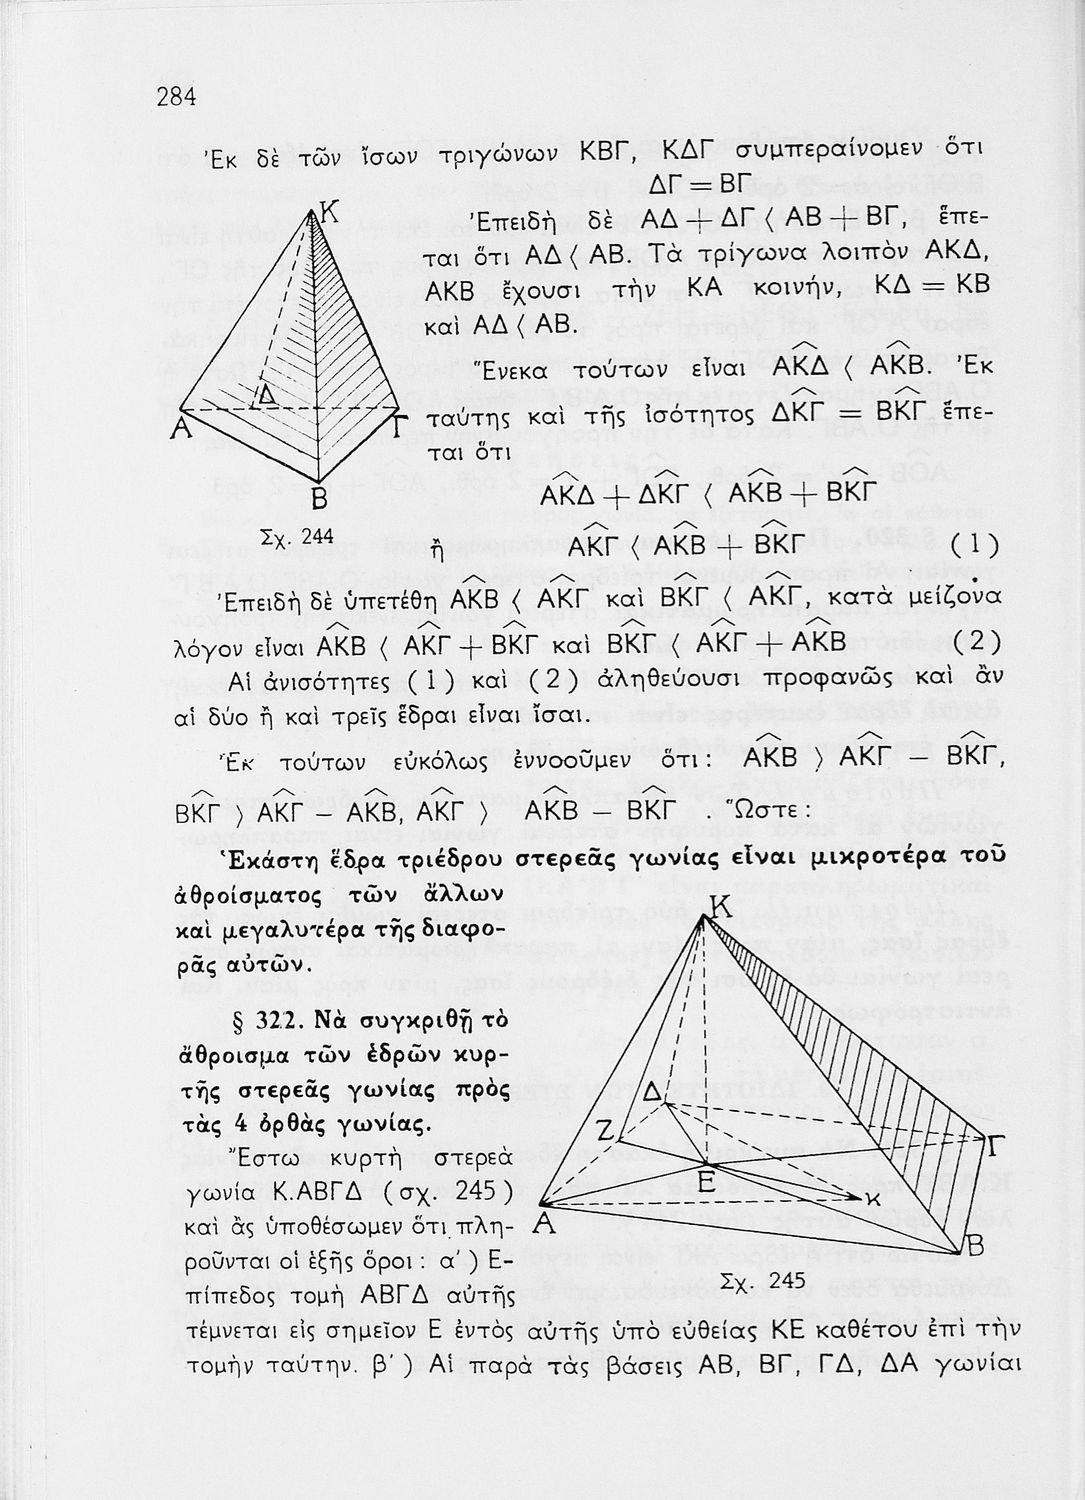 284
Ἐκ δὲ τῶν ἴσων τριγώνων ΚΒΓ, ΚΔΓ συμπεραίνομεν ὅτι
ΔΓ = ΒΓ
Ἐπειδὴ δὲ ΑΔ + ΔΓ ⟨ ΑΒ + ΒΓ, ἕπε-
ται ὅτι ΑΔ ⟨ ΑΒ. Τὰ τρίγωνα λοιπὸν ΑΚΔ,
ΑΚΒ ἔχουσι τὴν ΚΑ κοινήν, ΚΔ = ΚΒ
καὶ ΑΔ ⟨ ΑΒ.
Ἕνεκα τούτων εἶναι ΑΚ̂Δ ⟨ ΑΚ̂Β. Ἐκ
ταύτης καὶ τῆς ἰσότητος ΔΚ̂Γ = ΒΚ̂Γ ἕπε-
ται ὅτι
ΑΚ̂Δ + ΔΚ̂Γ ⟨ ΑΚ̂Β + ΒΚ̂Γ
ἢ ΑΚ̂Γ ⟨ ΑΚ̂Β + ΒΚ̂Γ (1)
Κ
Δ
Α
Γ
Β
Σχ. 244
Ἐπειδὴ δὲ ὑπετέθη ΑΚ̂Β ⟨ ΑΚ̂Γ καὶ ΒΚ̂Γ ⟨ ΑΚ̂Γ, κατὰ μείζονα
λόγον εἶναι ΑΚ̂Β ⟨ ΑΚ̂Γ + ΒΚ̂Γ καὶ ΒΚ̂Γ ⟨ ΑΚ̂Γ + ΑΚ̂Β (2)
Αἱ ἀνισότητες (1) καὶ (2) ἀληθεύουσι προφανῶς καὶ ἂν
αἱ δύο ἢ καὶ τρεῖς ἕδραι εἶναι ἴσαι.
Ἐκ τούτων εὐκόλως ἐννοοῦμεν ὅτι: ΑΚ̂Β ⟩ ΑΚ̂Γ – ΒΚ̂Γ,
ΒΚ̂Γ ⟩ ΑΚ̂Γ – ΑΚ̂Β, ΑΚ̂Γ ⟩ ΑΚ̂Β – ΒΚ̂Γ . Ὥστε:
Ἑκάστη ἕδρα τριέδρου στερεᾶς γωνίας εἶναι μικροτέρα τοῦ
ἀθροίσματος τῶν ἄλλων
καὶ μεγαλυτέρα τῆς διαφο-
ρᾶς αὐτῶν.
§ 322. Νὰ συγκριθῇ τὸ
ἄθροισμα τῶν ἑδρῶν κυρ-
τῆς στερεᾶς γωνίας πρὸς
τὰς 4 ὀρθὰς γωνίας.
Ἔστω κυρτὴ στερεὰ
γωνία Κ.ΑΒΓΔ (σχ. 245)
καὶ ἂς ὑποθέσωμεν ὅτι πλη-
ροῦνται οἱ ἑξῆς ὅροι: α΄) Ἐ-
πίπεδος τομὴ ΑΒΓΔ αὐτῆς
Κ
Δ
Ζ
Γ
Ε
κ
Α
Β
Σχ. 245
τέμνεται εἰς σημεῖον Ε ἐντὸς αὐτῆς ὑπὸ εὐθείας ΚΕ καθέτου ἐπὶ τὴν
τομὴν ταύτην. β΄) Αἱ παρὰ τὰς βάσεις ΑΒ, ΒΓ, ΓΔ, ΔΑ γωνίαι